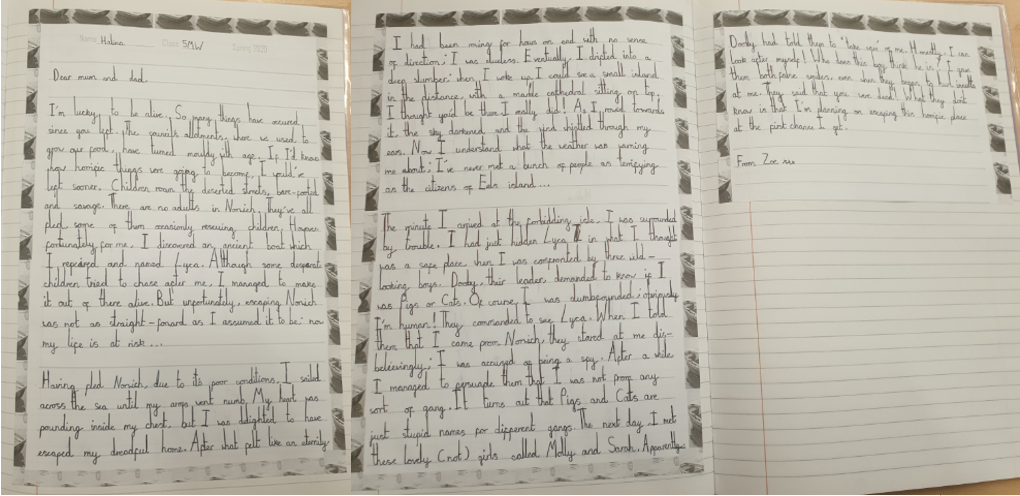 Name Halima Class 5MW Spring 2020
Dear mum and dad,
I'm lucky to be alive. So many things have occured
since you left. The council's allotments, where we used to
grow our food, have turned mouldy with age. If I'd know
how horrific things were going to become, I would've
left sooner. Children roam the deserted streets, bare-footed
and savage. There are no adults in Norwich. They've all
fled, some of them occasionly rescuing children. However,
fortunately for me, I discovered an ancient boat which
I repaired and named Lyca. Although some desperate
children tried to chase after me, I managed to make
it out of there alive. But unfortunately, escaping Norwich
was not as straight-forward as I assumed it to be: now
my life is at risk...
Having fled Norwich, due to its poor conditions, I sailed
across the sea until my arms went numb. My heart was
pounding inside my chest, but I was delighted to have
escaped my dreadful home. After what felt like an eternity
I had been rowing for hours on end with no sense
of direction; I was clueless. Eventually, I drifted into a
deep slumber: when I woke up I could see a small island
in the distance, with a marble cathedral sitting on top.
I thought you'd be there I really did! As I moved towards
it, the sky darkened and the wind whistled through my
ears. Now I understand what the weather was warning
me about; I've never met a bunch of people as terrifying
as the citizens of Eels island...
The minute I arrived at the forbidding isle, I was surrounded
by trouble. I had just hidden Lyca in what I thought
was a safe place when I was confronted by three wild-
looking boys. Dooby, their leader, demanded to know if I
was Pigs or Cats. Of course, I was dumbfounded; obviously
I'm human! They commanded to see Lyca. When I told
them that I came from Norwich, they stared at me dis-
believingly; I was accused of being a spy. After a while
I managed to persuade them that I was not from any
sort of gang. It turns out that Pigs and Cats are
just stupid names for different gangs. The next day, I met
these lovely (not) girls called Molly and Sarah. Apparently
Dooby had told them to "take care" of me. Honestly, I can
look after myself! Who does this boy think he is? I gave
them both false smiles, even when they began to hurl insults
at me. They said that you were dead! What they don't
know is that I'm planning on escaping this horrific place
at the first chance I get.
From Zoe xxx